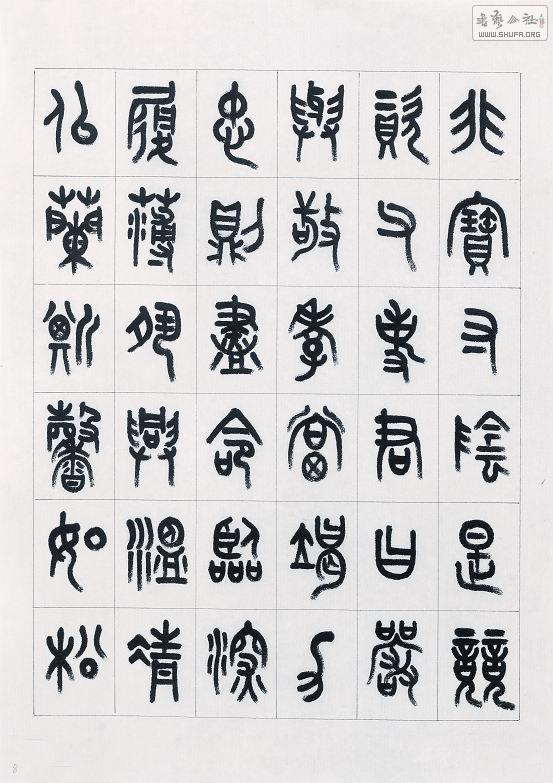 非寶寸陰是競
資父事君曰嚴
與敬孝當竭力
忠則盡命臨深
履薄夙興溫凊
似蘭斯馨如松
書藝公社
WWW.SHUFA.ORG
8